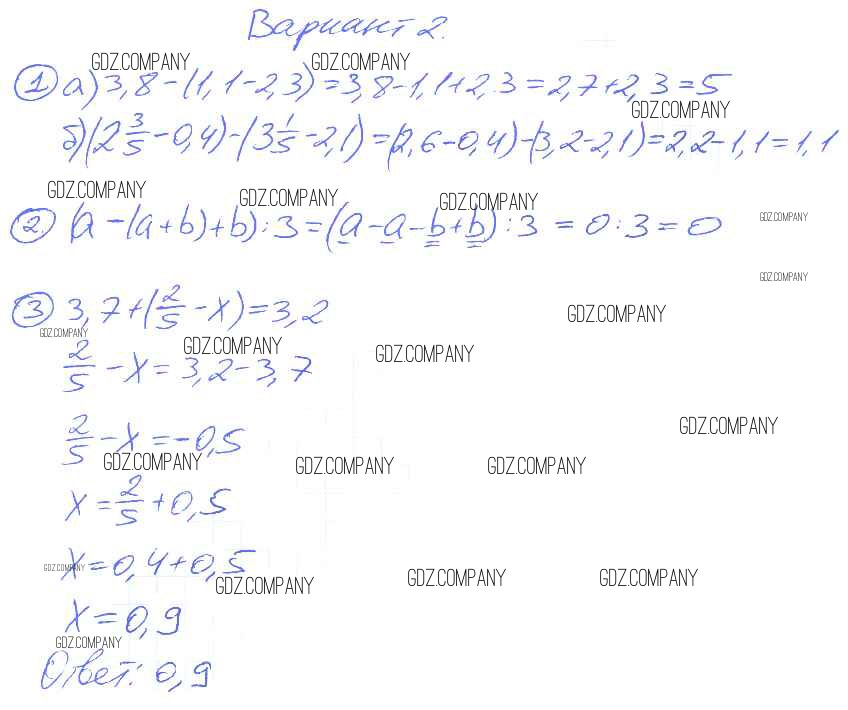 Вариант 2.
GDZ.COMPANY GDZ.COMPANY
① а) 3,8-(1,1-2,3)=3,8-1,1+2,3=2,7+2,3=5
GDZ.COMPANY
б) (2 3/5 -0,4)-(3 1/5 -2,1)=(2,6-0,4)-(3,2-2,1)=2,2-1,1=1,1
GDZ.COMPANY GDZ.COMPANY GDZ.COMPANY
GDZ.COMPANY
② (a-(a+b)+b):3=(a-a-b+b):3=0:3=0
GDZ.COMPANY
③ 3,7+(2/5 -x)=3,2
GDZ.COMPANY
GDZ.COMPANY
GDZ.COMPANY GDZ.COMPANY
2/5 -x=3,2-3,7
GDZ.COMPANY
2/5 -x=-0,5
GDZ.COMPANY GDZ.COMPANY GDZ.COMPANY
x=2/5+0,5
GDZ.COMPANY
x=0,4+0,5
GDZ.COMPANY GDZ.COMPANY GDZ.COMPANY
x=0,9
GDZ.COMPANY
Ответ: 0,9